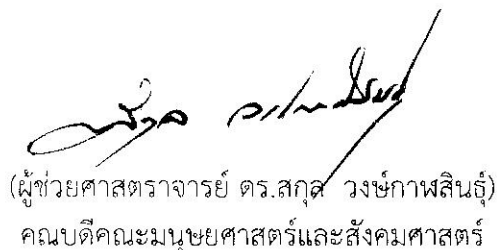 (ผู้ช่วยศาสตราจารย์ ดร.สกุล วงษ์กาฬสินธุ์)
คณบดีคณะมนุษยศาสตร์และสังคมศาสตร์